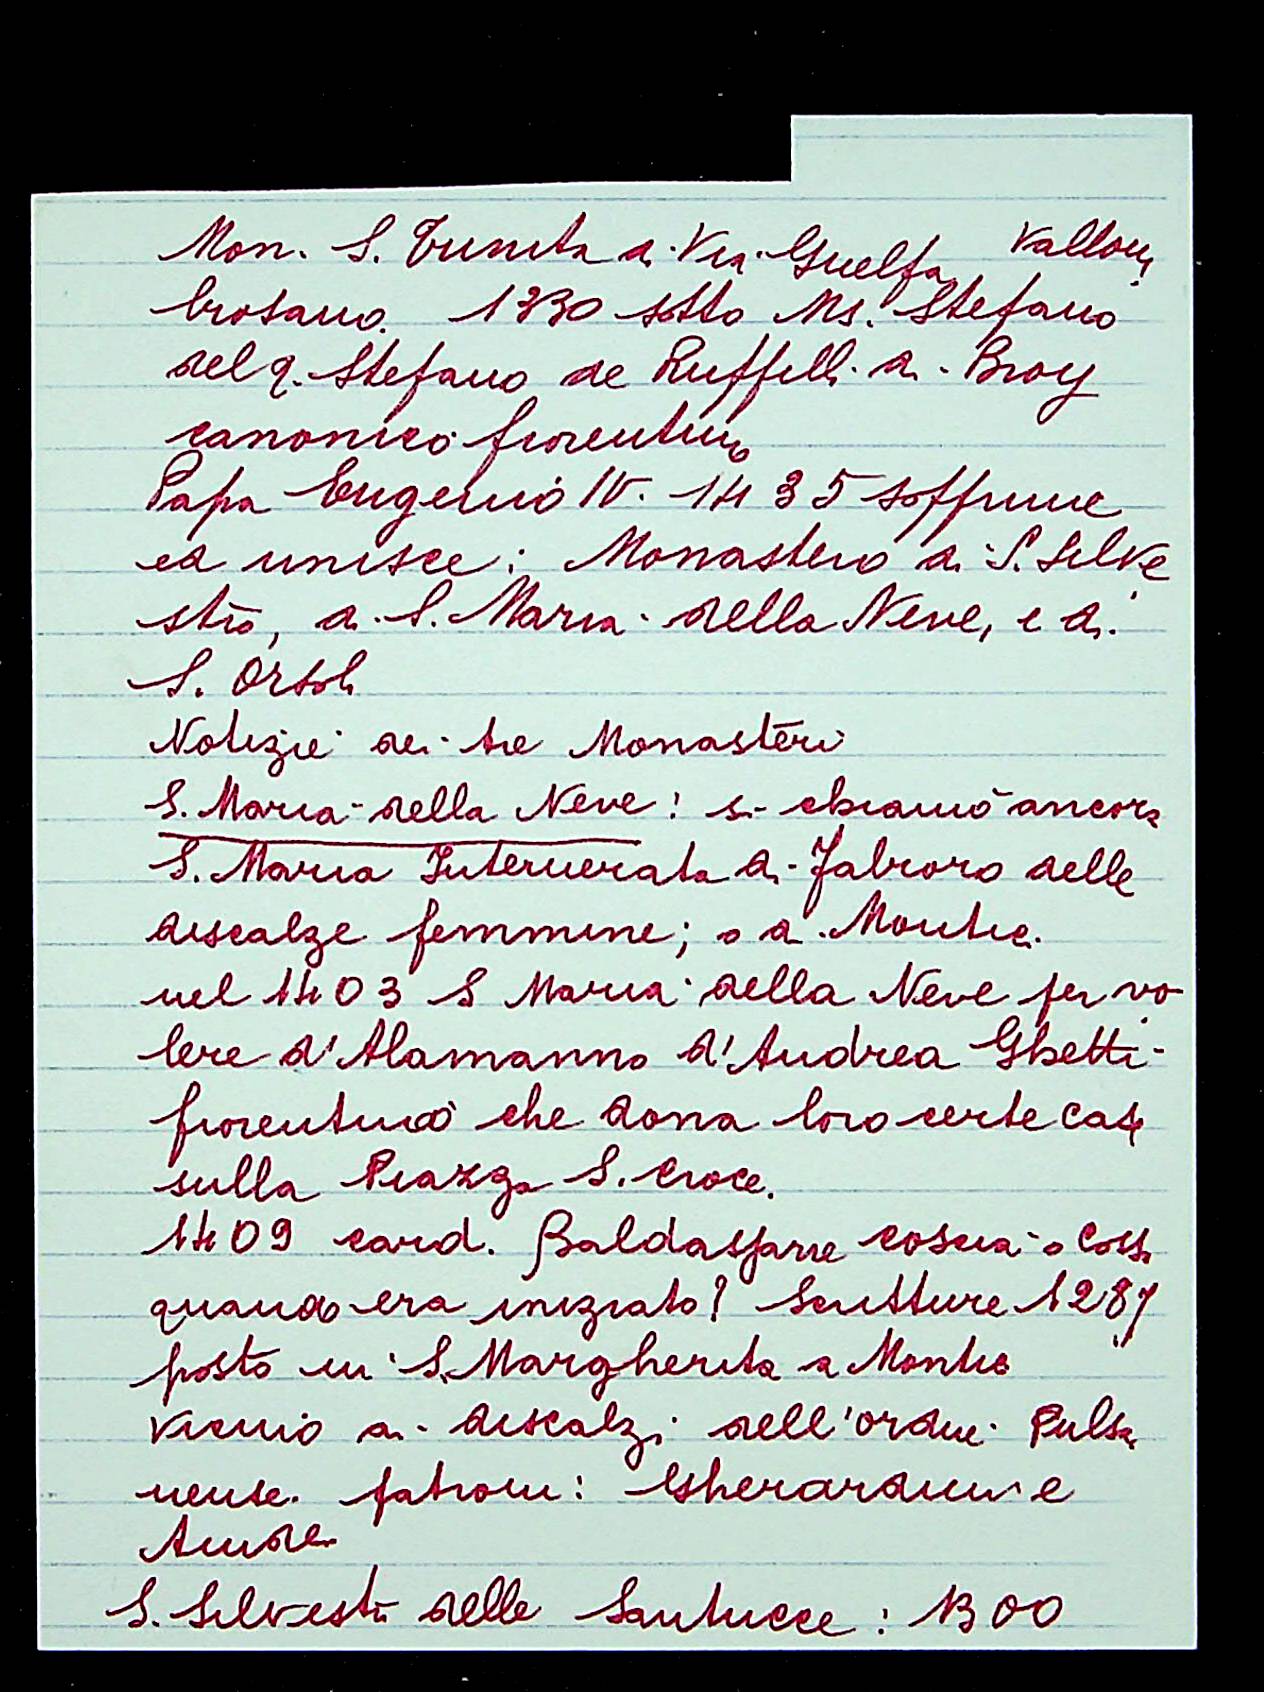 Mon. S. Trinita di Via Guelfa Vallom
brosano. 1330 sotto Ms. Stefano
del q. Stefano de Ruffelli di Broy
canonico fiorentino
Papa Eugenio IV. 1435 soffrime
ed unisce: Monastero di S. Silve
stro, di S. Maria della Neve, e di
S. Orsola
Notizie dei tre Monasteri
S. Maria della Neve: si chiamò ancora
S. Maria Intemerata di Fabroro delle
discalze femmine; o di Montic.
nel 1403 S Maria della Neve per vo
lere d'Alamanno d'Andrea Ghetti
fiorentino che dona loro certe case
sulla Piazza S. Croce.
1409 card. Baldassarre Coscia o Coss.
quando era iniziato? Scritture 1287
posto in S. Margherita a Montic
vicino ai discalzi dell'ordine Pulsa
nense. patroni: Gherardini e
S. Silvestro delle Santucce: 1300